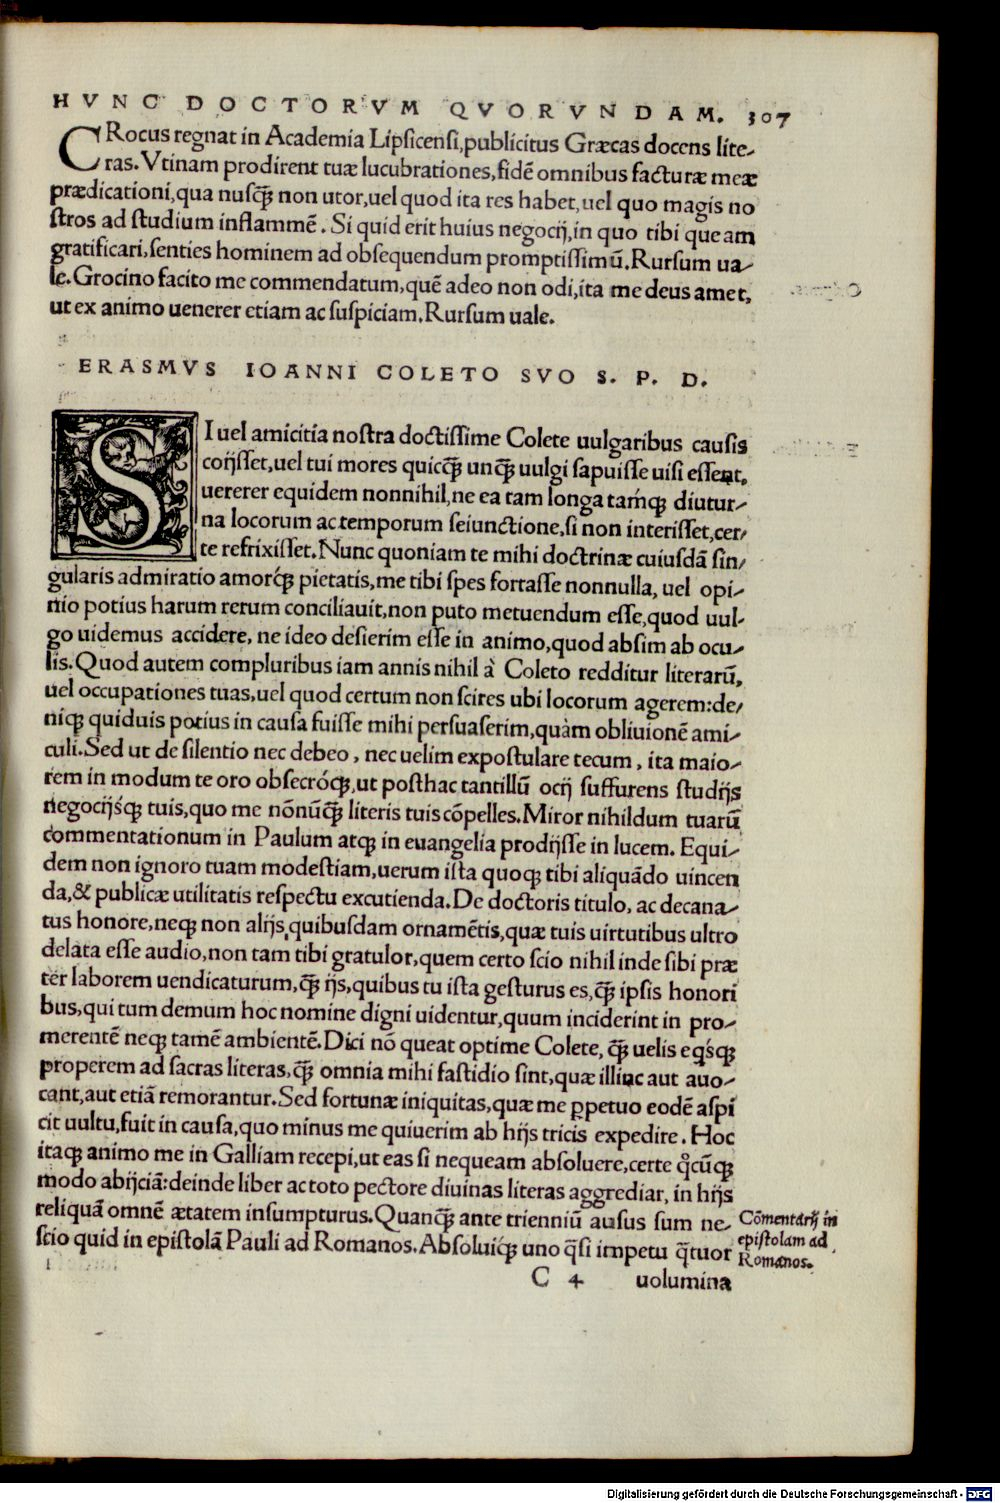 HVNC DOCTORVM QVORVNDAM. 307
CRocus regnat in Academia Lipsicensi, publicitus Græcas docens lite-
ras. Vtinam prodirent tuæ lucubrationes, fidē omnibus facturæ meæ
prædicationi, qua nusꝗ̃ non utor, uel quod ita res habet, uel quo magis no
stros ad studium inflammē. Si quid erit huius negocij, in quo tibi queam
gratificari, senties hominem ad obsequendum promptissimū. Rursum ua-
le. Grocino facito me commendatum, quē adeo non odi, ita me deus amet,
ut ex animo uenerer etiam ac suspiciam. Rursum uale.
ERASMVS IOANNI COLETO SVO S. P. D.
SI uel amicitia nostra doctissime Colete uulgaribus causis
coijsset, uel tui mores quicꝗ̃ unꝗ̃ uulgi sapuisse uisi essent,
uererer equidem nonnihil, ne ea tam longa tamꝗ́ diutur-
na locorum ac temporum seiunctione, si non interisset, cer-
te refrixisset. Nunc quoniam te mihi doctrinæ cuiusdā sin-
gularis admiratio amorꝗ́ pietatis, me tibi spes fortasse nonnulla, uel opi-
nio potius harum rerum conciliauit, non puto metuendum esse, quod uul-
go uidemus accidere, ne ideo desierim esse in animo, quod absim ab ocu-
lis. Quod autem compluribus iam annis nihil à Coleto redditur literarū,
uel occupationes tuas, uel quod certum non scires ubi locorum agerem: de-
niꝗ quiduis potius in causa fuisse mihi persuaserim, quàm obliuionē ami-
culi. Sed ut de silentio nec debeo, nec uelim expostulare tecum, ita maio-
rem in modum te oro obsecróꝗ, ut posthac tantillū ocij suffurens studijs
negocijsꝗ́ tuis, quo me nōnūꝗ̃ literis tuis cōpelles. Miror nihildum tuarū
commentationum in Paulum atꝗ in euangelia prodijsse in lucem. Equi-
dem non ignoro tuam modestiam, uerum ista quoꝗ tibi aliquādo uincen
da, & publicæ utilitatis respectu excutienda. De doctoris titulo, ac decana-
tus honore, neꝗ non alijs quibusdam ornamētis, quæ tuis uirtutibus ultro
delata esse audio, non tam tibi gratulor, quem certo scio nihil inde sibi præ
ter laborem uendicaturum, ꝗ̃ ijs, quibus tu ista gesturus es, ꝗ̃ ipsis honori
bus, qui tum demum hoc nomine digni uidentur, quum inciderint in pro-
merentē neꝗ tamē ambientē. Dici nō queat optime Colete, ꝗ̃ uelis eꝗ́sꝗ
properem ad sacras literas, ꝗ̃ omnia mihi fastidio sint, quæ illinc aut auo-
cant, aut etiā remorantur. Sed fortunæ iniquitas, quæ me ꝑpetuo eodē aspi
cit uultu, fuit in causa, quo minus me quiuerim ab hijs tricis expedire. Hoc
itaꝗ animo me in Galliam recepi, ut eas si nequeam absoluere, certe qͦcūꝗ
modo abijciā: deinde liber ac toto pectore diuinas literas aggrediar, in hijs
reliquā omnē ætatem insumpturus. Quanꝗ̃ ante trienniū ausus sum ne-
scio quid in epistolā Pauli ad Romanos. Absoluiꝗ́ uno q̄si impetu q̄tuor
Cōmentarij in
epistolam ad
Romanos.
C 4 uolumina
Digitalisierung gefördert durch die Deutsche Forschungsgemeinschaft - DFG